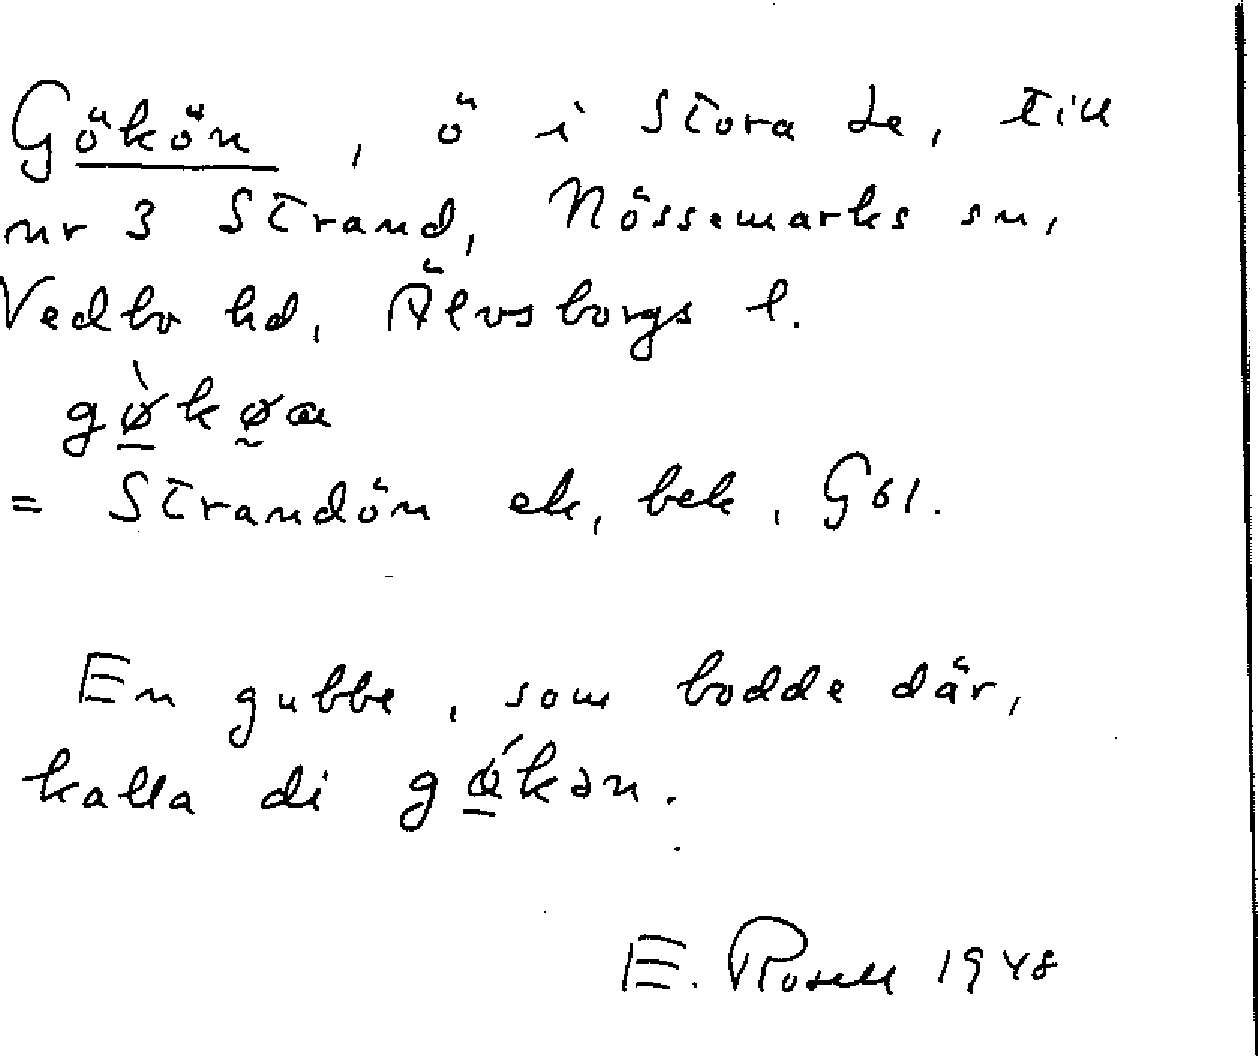 Gökön, ö i Stora Le, till
nr 3 Strand, Nössemarks sn,
Vedbo hd, Älvsborgs l.
gø̀køa
= Strandön ek, bek, Göl.
En gubbe, som bodde där,
kalla di gǿkən.
E. Rosell 1948